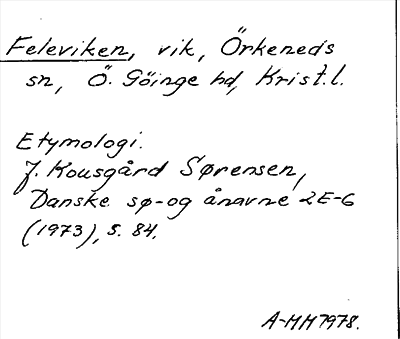 Feleviken, vik, Örkeneds
sn, Ö. Göinge hd, Krist. l.
Etymologi.
J. Kousgård Sørensen,
Danske sø- og ånavne 2 E-G
(1973), s. 84.
A-MM 7978.